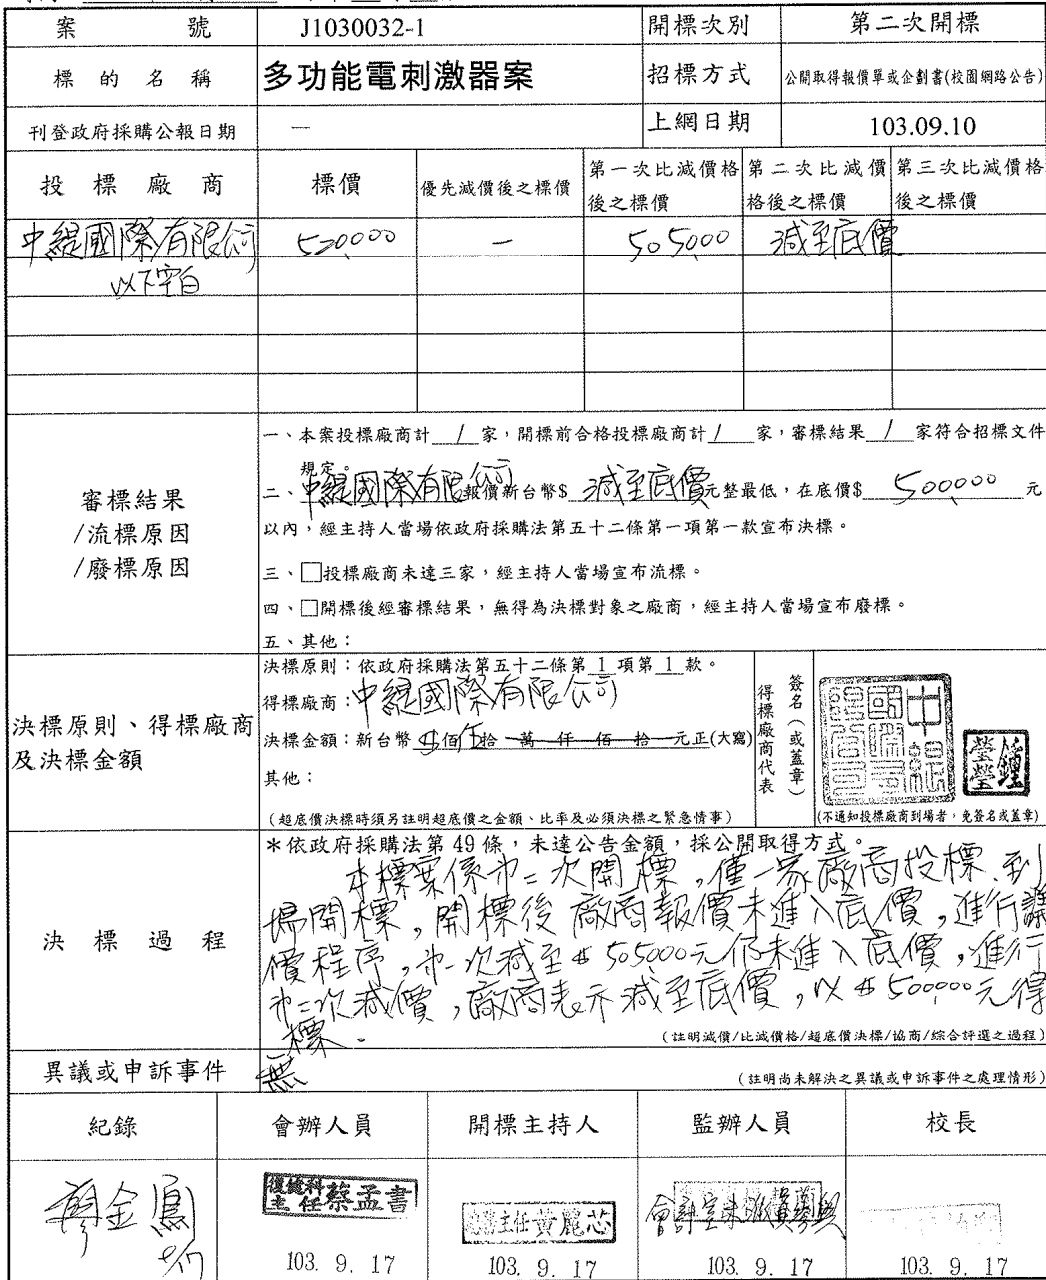 案號 J1030032-1 開標次別 第二次開標
標的名稱 多功能電刺激器案 招標方式 公開取得報價單或企劃書(校園網路公告)
刊登政府採購公報日期 — 上網日期 103.09.10
投標廠商 標價 優先減價後之標價 第一次比減價格後之標價 第二次比減價格後之標價 第三次比減價格後之標價
中緹國際有限公司 520000 — 505000 減至底價
以下空白
審標結果
/流標原因
/廢標原因
一、本案投標廠商計 1 家,開標前合格投標廠商計 1 家,審標結果 1 家符合招標文件
規定。
二、中緹國際有限公司報價新台幣$ 減至底價元整最低,在底價$ 500000 元
以內,經主持人當場依政府採購法第五十二條第一項第一款宣布決標。
三、□投標廠商未達三家,經主持人當場宣布流標。
四、□開標後經審標結果,無得為決標對象之廠商,經主持人當場宣布廢標。
五、其他:
決標原則、得標廠商
及決標金額
決標原則:依政府採購法第五十二條第 1 項第 1 款。
得標廠商:中緹國際有限公司
決標金額:新台幣 佰 拾 萬 仟 佰 拾 元正(大寫)
其他:
(超底價決標時須另註明超底價之金額、比率及必須決標之緊急情事)
得標廠商代表
簽名(或蓋章)
中緹國際有限公司
鍾瑩瑩
(不通知投標廠商到場者,免簽名或蓋章)
決標過程
*依政府採購法第 49 條,未達公告金額,採公開取得方式。
本標案係第二次開標,僅一家廠商投標.到
場開標,開標後廠商報價未進入底價,進行議
價程序,第一次減至$505000元仍未進入底價,進行
第二次減價,廠商表示減至底價,以$500000元得
標.
(註明減價/比減價格/超底價決標/協商/綜合評選之過程)
異議或申訴事件 無
(註明尚未解決之異議或申訴事件之處理情形)
紀錄 會辦人員 開標主持人 監辦人員 校長
廖金鳳 9/17
復健科主任 蔡孟書
主任黃麗芯
會計室
103. 9. 17 103. 9. 17 103. 9. 17 103. 9. 17